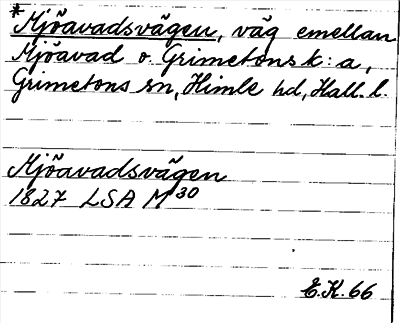 *Mjöavadsvägen, väg emellan
Mjöavad o. Grimetons k:a,
Grimetons sn, Himle hd, Hall. l.
Mjöavadsvägen
1827 LSA M30
E.K. 66